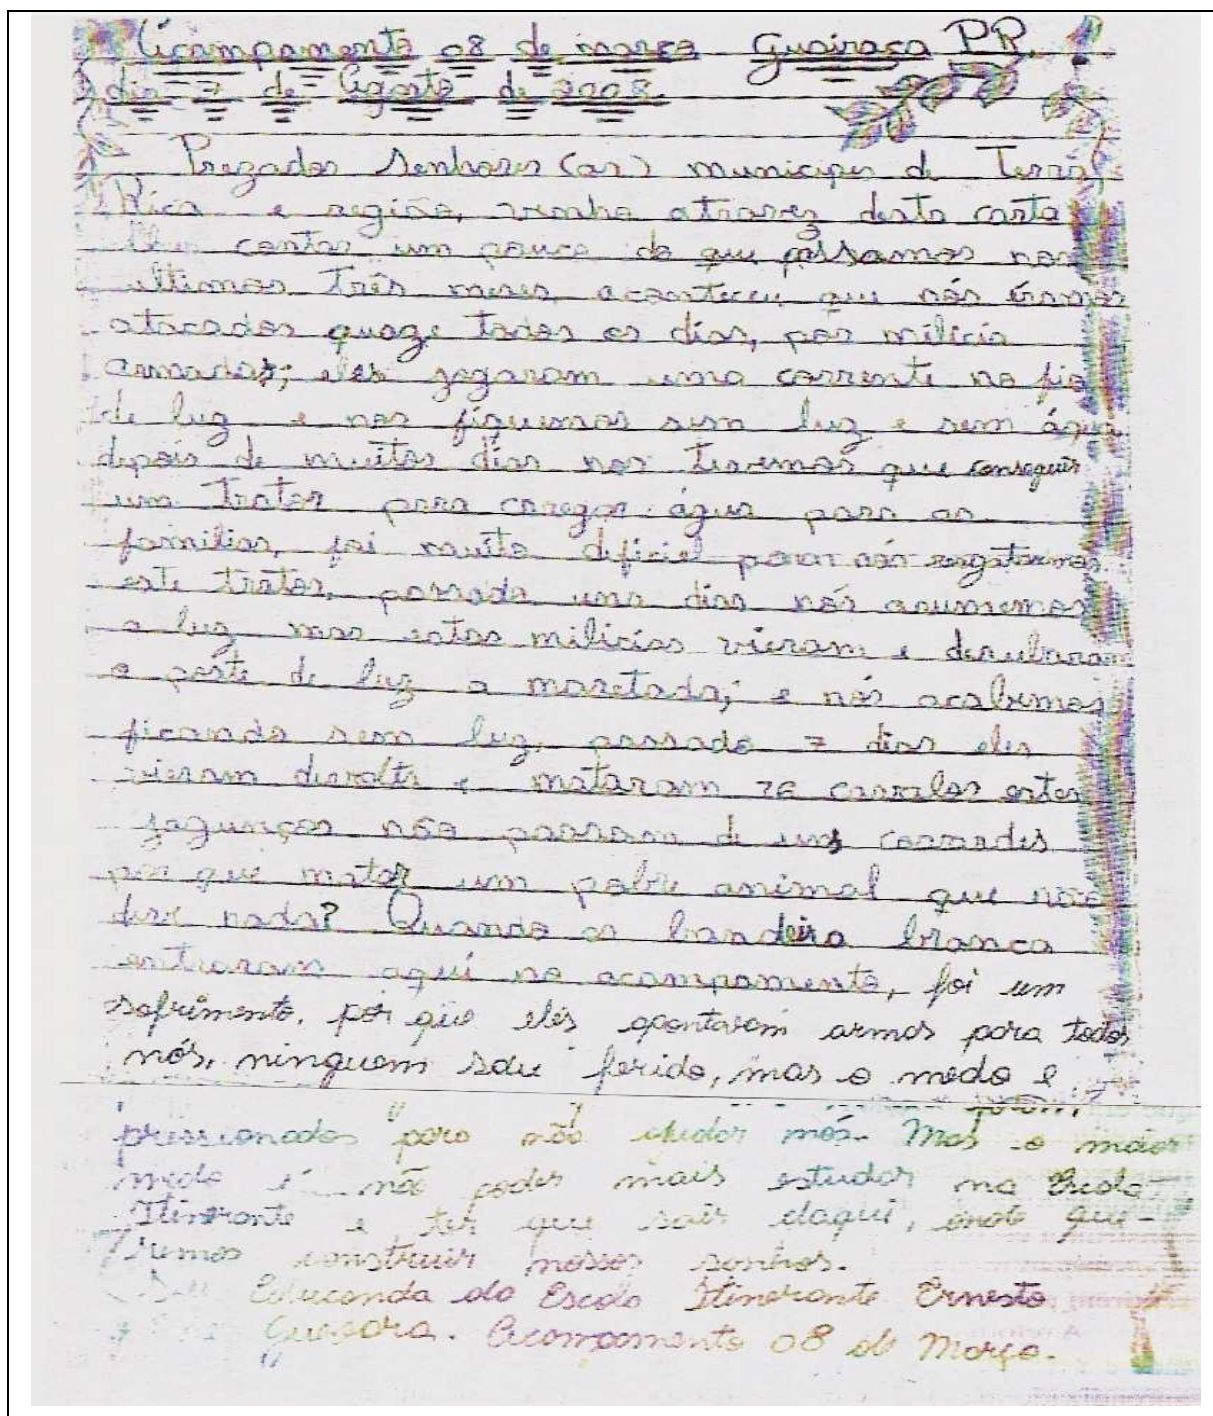 Acampamento 08 de março Guairaça PR.
dia 7 de Agosto de 2008.
Prezados Senhores (as) municipes de Terra
Rica e região, venho atravez desta carta
lhes contar um pouco do que passamos nos
ultimos três meses, aconteceu que nós éramos
atacados quaze todos os dias, por milicia
armadas; eles jogaram uma corrente no fio
de luz e nos fiquemos sem luz e sem água
depois de muitos dias nos tivemos que conseguir
um trator para caregar água para as
familias, foi muito dificiel para nós resgatarmos
este trator, passado uns dias nós arumemos
a luz mas estas milicias vieram e derubaram
o poste de luz a maretada; e nós acabemos
ficando sem luz, passado 7 dias eles
vieram devolta e mataram 76 cavalos estes
jagunços não passam de uns covardes
por que matar um pobre animal que não
deve nada? Quando os bandeira branca
entraram aqui no acampamento, foi um
sofrimento, por que eles apontavam armas para todos
nós, ninguem saiu ferido, mas o medo e
foram
pressionados para não ajudar nós. Mas o maior
medo é não poder mais estudar na Escola
Itinerante e ter que sair daqui, onde que-
remos construir nossos sonhos.
Educanda da Escola Itinerante Ernesto
Guevara. Acampamento 08 de Março.